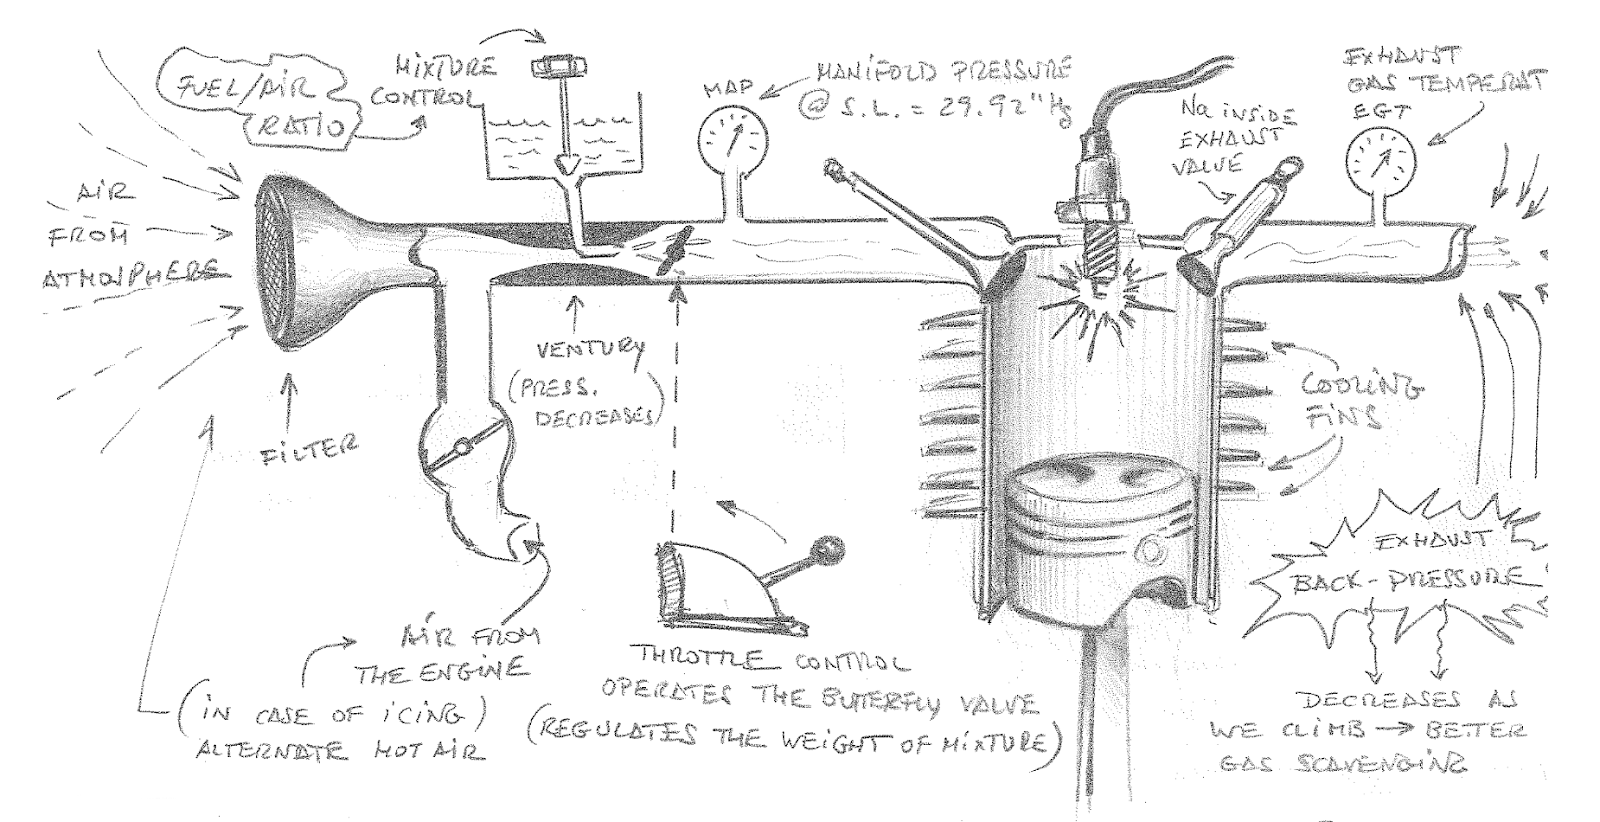 FUEL/AIR
RATIO
MIXTURE
CONTROL
MAP
MANIFOLD PRESSURE
@ S.L. = 29.92" Hg
Na INSIDE
EXHAUST
VALVE
EXHAUST
GAS TEMPERAT
EGT
AIR
FROM
ATMOSPHERE
FILTER
VENTURY
(PRESS.
DECREASES)
COOLING
FINS
EXHAUST
BACK-PRESSURE
DECREASES AS
WE CLIMB → BETTER
GAS SCAVENGING
AIR FROM
THE ENGINE
(IN CASE OF ICING)
ALTERNATE HOT AIR
THROTTLE CONTROL
OPERATES THE BUTERFLY VALVE
(REGULATES THE WEIGHT OF MIXTURE)